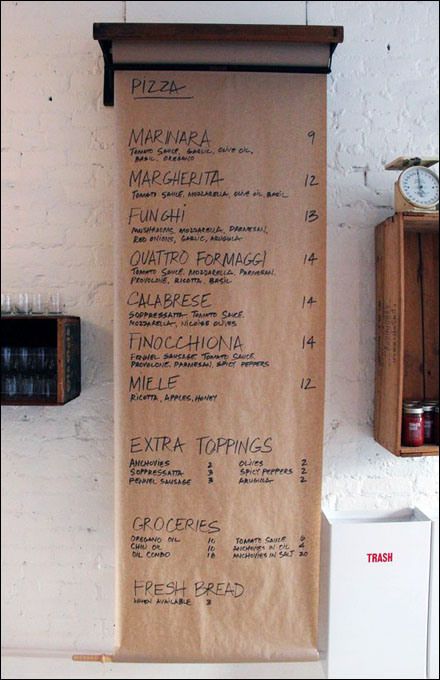 PIZZA
MARINARA 9
TOMATO SAUCE, GARLIC, OLIVE OIL,
BASIL, OREGANO
MARGHERITA 12
TOMATO SAUCE, MOZZARELLA, OLIVE OIL, BASIL
FUNGHI 13
MUSHROOMS, MOZZARELLA, PARMESAN,
RED ONIONS, GARLIC, ARUGULA
QUATTRO FORMAGGI 14
TOMATO SAUCE, MOZZARELLA, PARMESAN,
PROVOLONE, RICOTTA, BASIL
CALABRESE 14
SOPPRESSATTA, TOMATO SAUCE,
MOZZARELLA, NICOISE OLIVES
FINOCCHIONA 14
FENNEL SAUSAGE, TOMATO SAUCE,
PROVOLONE, PARMESAN, SPICY PEPPERS
MIELE 12
RICOTTA, APPLES, HONEY
EXTRA TOPPINGS
ANCHOVIES 2 OLIVES 2
SOPPRESSATTA 3 SPICY PEPPERS 2
FENNEL SAUSAGE 3 ARUGULA 2
GROCERIES
OREGANO OIL 10 TOMATO SAUCE 6
CHILI OIL 10 ANCHOVIES IN OIL 4
OIL COMBO 18 ANCHOVIES IN SALT 20
FRESH BREAD
WHEN AVAILABLE 3
TRASH